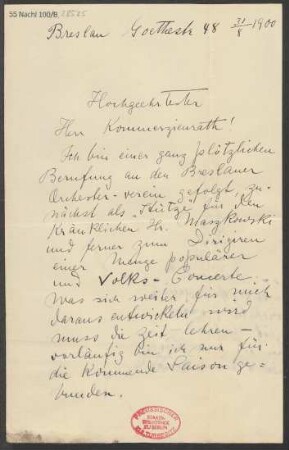 55 Nachl 100/B, 28525
Breslau Goethestr 48 31/8 1900
Hochgeehrtester
Herr Kommerzienrath!
Ich bin einer ganz plötzlichen
Berufung an den Breslauer
Orchester-verein gefolgt, zu-
nächst als „Stütze“ für den
kränklichen Hr. Maszkowski
und ferner zum Dirigiren
einer Menge populärer
und Volks-Concerte.
Was sich weiter für mich
daraus entwickeln wird
muss die Zeit lehren –
vorläufig bin ich nur für
die kommende Saison ge-
bunden.